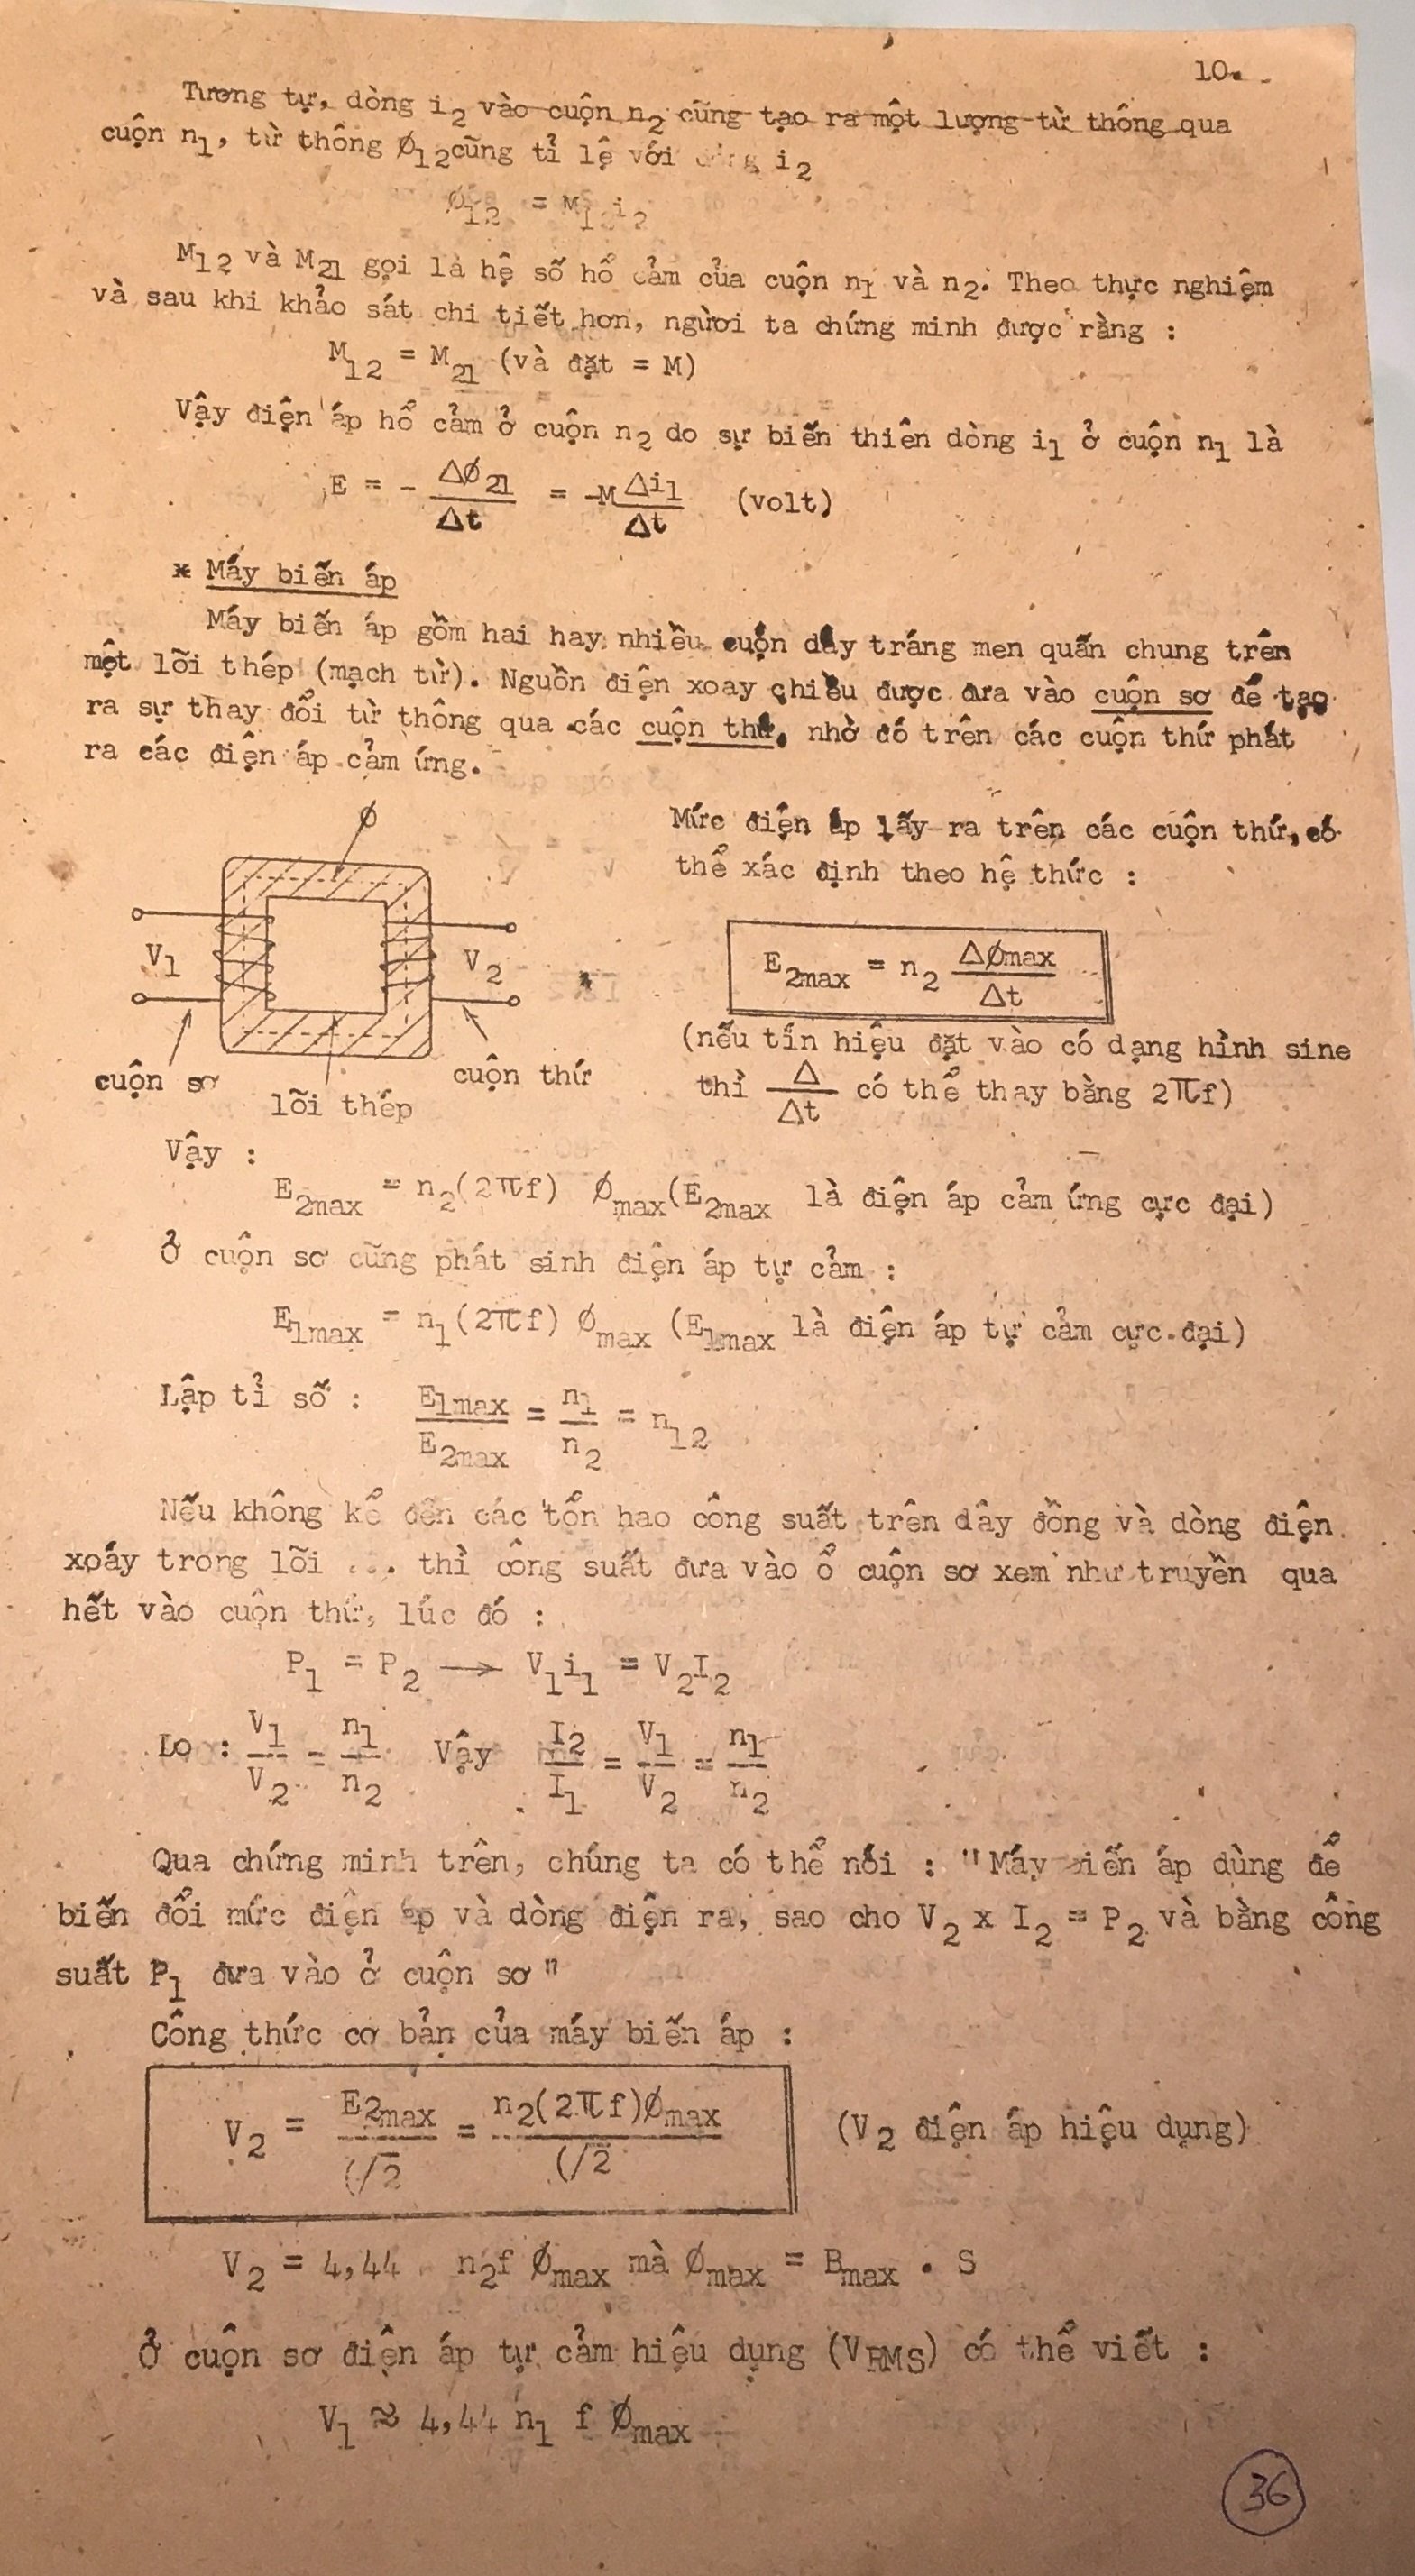 10.
Tương tự, dòng i₂ vào cuộn n₂ cũng tạo ra một lượng từ thông qua
cuộn n₁, từ thông Ø₁₂ cũng tỉ lệ với dòng i₂
Ø₁₂ = M₁₂i₂
M₁₂ và M₂₁ gọi là hệ số hổ cảm của cuộn n₁ và n₂. Theo thực nghiệm
và sau khi khảo sát chi tiết hơn, người ta chứng minh được rằng :
M₁₂ = M₂₁ (và đặt = M)
Vậy điện áp hổ cảm ở cuộn n₂ do sự biến thiên dòng i₁ ở cuộn n₁ là
E = - ΔØ₂₁/Δt = -M Δi₁/Δt (volt)
* Máy biến áp
Máy biến áp gồm hai hay nhiều cuộn dây tráng men quấn chung trên
một lõi thép (mạch từ). Nguồn điện xoay chiều được đưa vào cuộn sơ để tạo
ra sự thay đổi từ thông qua các cuộn thứ, nhờ đó trên các cuộn thứ phát
ra các điện áp cảm ứng.
Ø
V₁
V₂
cuộn sơ
lõi thép
cuộn thứ
Mức điện áp lấy ra trên các cuộn thứ, có
thể xác định theo hệ thức :
E₂max = n₂ ΔØmax/Δt
(nếu tín hiệu đặt vào có dạng hình sine
thì Δ/Δt có thể thay bằng 2πf)
Vậy :
E₂max = n₂(2πf) Ømax (E₂max là điện áp cảm ứng cực đại)
Ở cuộn sơ cũng phát sinh điện áp tự cảm :
E₁max = n₁(2πf) Ømax (E₁max là điện áp tự cảm cực đại)
Lập tỉ số : E₁max/E₂max = n₁/n₂ = n₁₂
Nếu không kể đến các tổn hao công suất trên dây đồng và dòng điện
xoáy trong lõi ... thì công suất đưa vào ổ cuộn sơ xem như truyền qua
hết vào cuộn thứ, lúc đó :
P₁ = P₂ → V₁i₁ = V₂I₂
Do : V₁/V₂ = n₁/n₂ Vậy I₂/I₁ = V₁/V₂ = n₁/n₂
Qua chứng minh trên, chúng ta có thể nói : "Máy biến áp dùng để
biến đổi mức điện áp và dòng điện ra, sao cho V₂ x I₂ = P₂ và bằng công
suất P₁ đưa vào ở cuộn sơ"
Công thức cơ bản của máy biến áp :
V₂ = E₂max/√2 = n₂(2πf)Ømax/√2 (V₂ điện áp hiệu dụng)
V₂ = 4,44 n₂f Ømax mà Ømax = Bmax . S
Ở cuộn sơ điện áp tự cảm hiệu dụng (VRMS) có thể viết :
V₁ ≈ 4,44 n₁ f Ømax
36